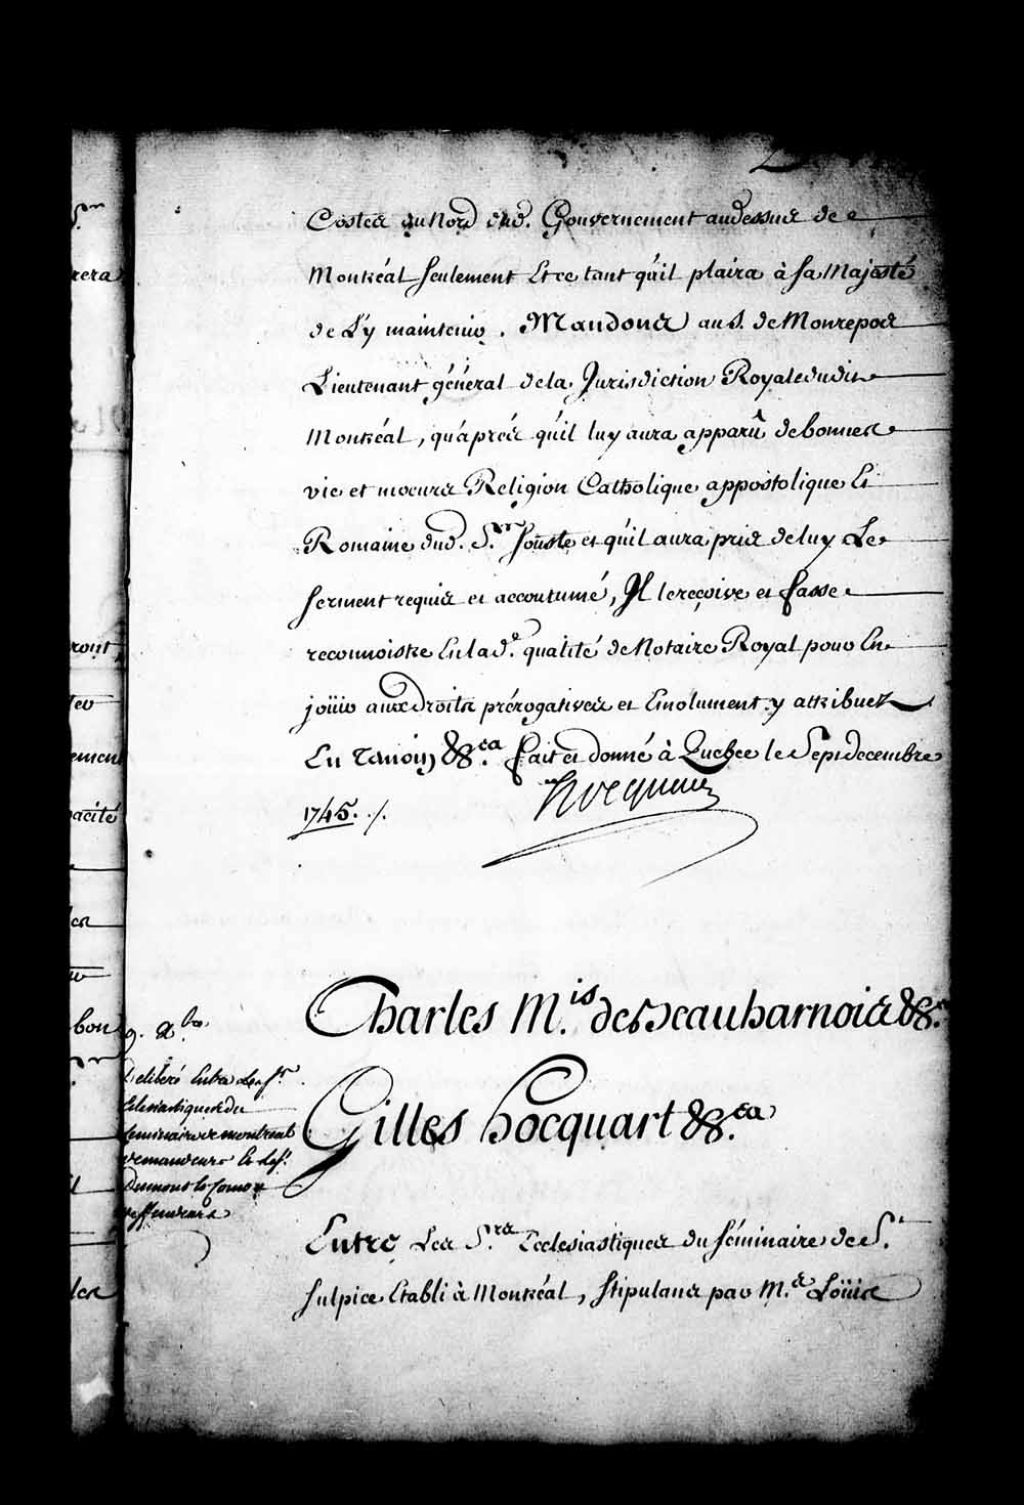 Costes du Nord dud. Gouvernement audessus de
Montréal seulement Et ce tant qu'il plaira à sa Majesté
de L'y maintenir. Mandons au S. de Monrepos
Lieutenant général de la Jurisdiction Royale dudit
Montréal, qu'après qu'il luy aura apparû de bonnes
vie et moeurs Religion Catholique appostolique Et
Romaine dud. S.r Souste et qu'il aura pris de luy Le
serment requis et accoutumé, Il le reçoive et fasse
reconnoistre En lad.e qualité de Notaire Royal pour En
joüir aux droits prérogatives et Emolument y attribuez
En Temoin &c.ea fait et donné à Quebec le Sept decembre
1745. ./.
Hocquart
Charles M.is de Beauharnois &c.a
Gilles hocquart &c.ea
Deliberé Entre Les S.rs
Eclesiastiques du
Seminaire de montreal
demandeurs Et Le S.r
Dumont
deffendeurs
Entre Les S.rs Ecclesiastiques du Séminaire de S.t
Sulpice Etabli à Montréal, Stipulans par M.e Loüis